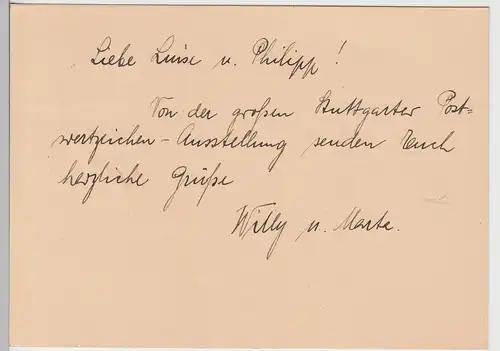 Liebe Luise u. Philipp!
Von der großen Stuttgarter Post=
wertzeichen-Ausstellung senden Euch
herzliche Grüße
Willy u. Marta.